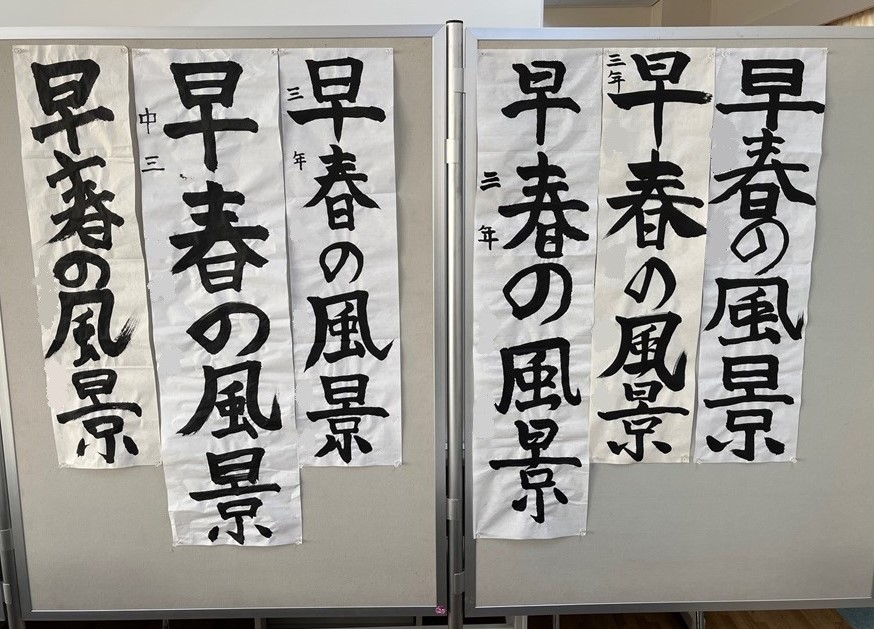 早春の風景
早春の風景
三年
早春の風景
三年
早春の風景
三年
早春の風景
中三
早春の風景